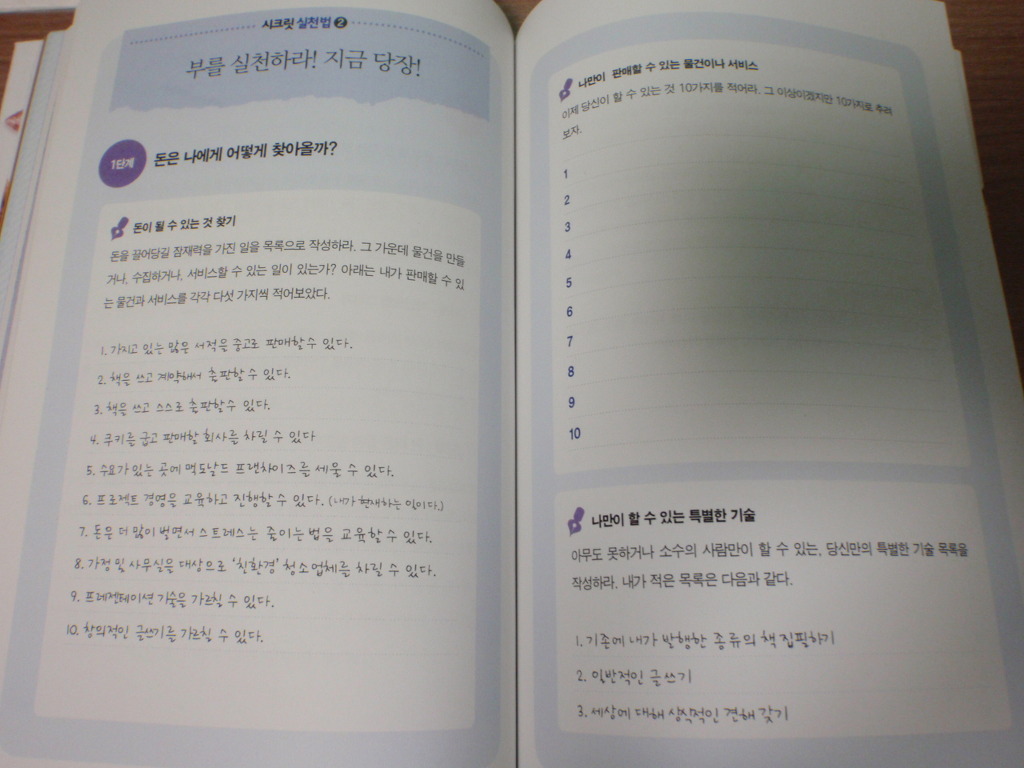 시크릿 실천법 2
부를 실천하라! 지금 당장!
1단계
돈은 나에게 어떻게 찾아올까?
돈이 될 수 있는 것 찾기
돈을 끌어당길 잠재력을 가진 일을 목록으로 작성하라. 그 가운데 물건을 만들
거나, 수집하거나, 서비스할 수 있는 일이 있는가? 아래는 내가 판매할 수 있
는 물건과 서비스를 각각 다섯 가지씩 적어보았다.
1. 가지고 있는 많은 서적을 중고로 판매할 수 있다.
2. 책을 쓰고 계약해서 출판할 수 있다.
3. 책을 쓰고 스스로 출판할 수 있다.
4. 쿠키를 굽고 판매할 회사를 차릴 수 있다
5. 수요가 있는 곳에 맥도날드 프랜차이즈를 세울 수 있다.
6. 프로젝트 경영을 교육하고 진행할 수 있다. (내가 현재하는 일이다.)
7. 돈은 더 많이 벌면서 스트레스는 줄이는 법을 교육할 수 있다.
8. 가정 및 사무실을 대상으로 '친환경' 청소업체를 차릴 수 있다.
9. 프레젠테이션 기술을 가르칠 수 있다.
10. 창의적인 글쓰기를 가르칠 수 있다.
나만이 판매할 수 있는 물건이나 서비스
이제 당신이 할 수 있는 것 10가지를 적어라. 그 이상이겠지만 10가지로 추려
보자.
1
2
3
4
5
6
7
8
9
10
나만이 할 수 있는 특별한 기술
아무도 못하거나 소수의 사람만이 할 수 있는, 당신만의 특별한 기술 목록을
작성하라. 내가 적은 목록은 다음과 같다.
1. 기존에 내가 발행한 종류의 책 집필하기
2. 일반적인 글쓰기
3. 세상에 대해 상식적인 견해 갖기